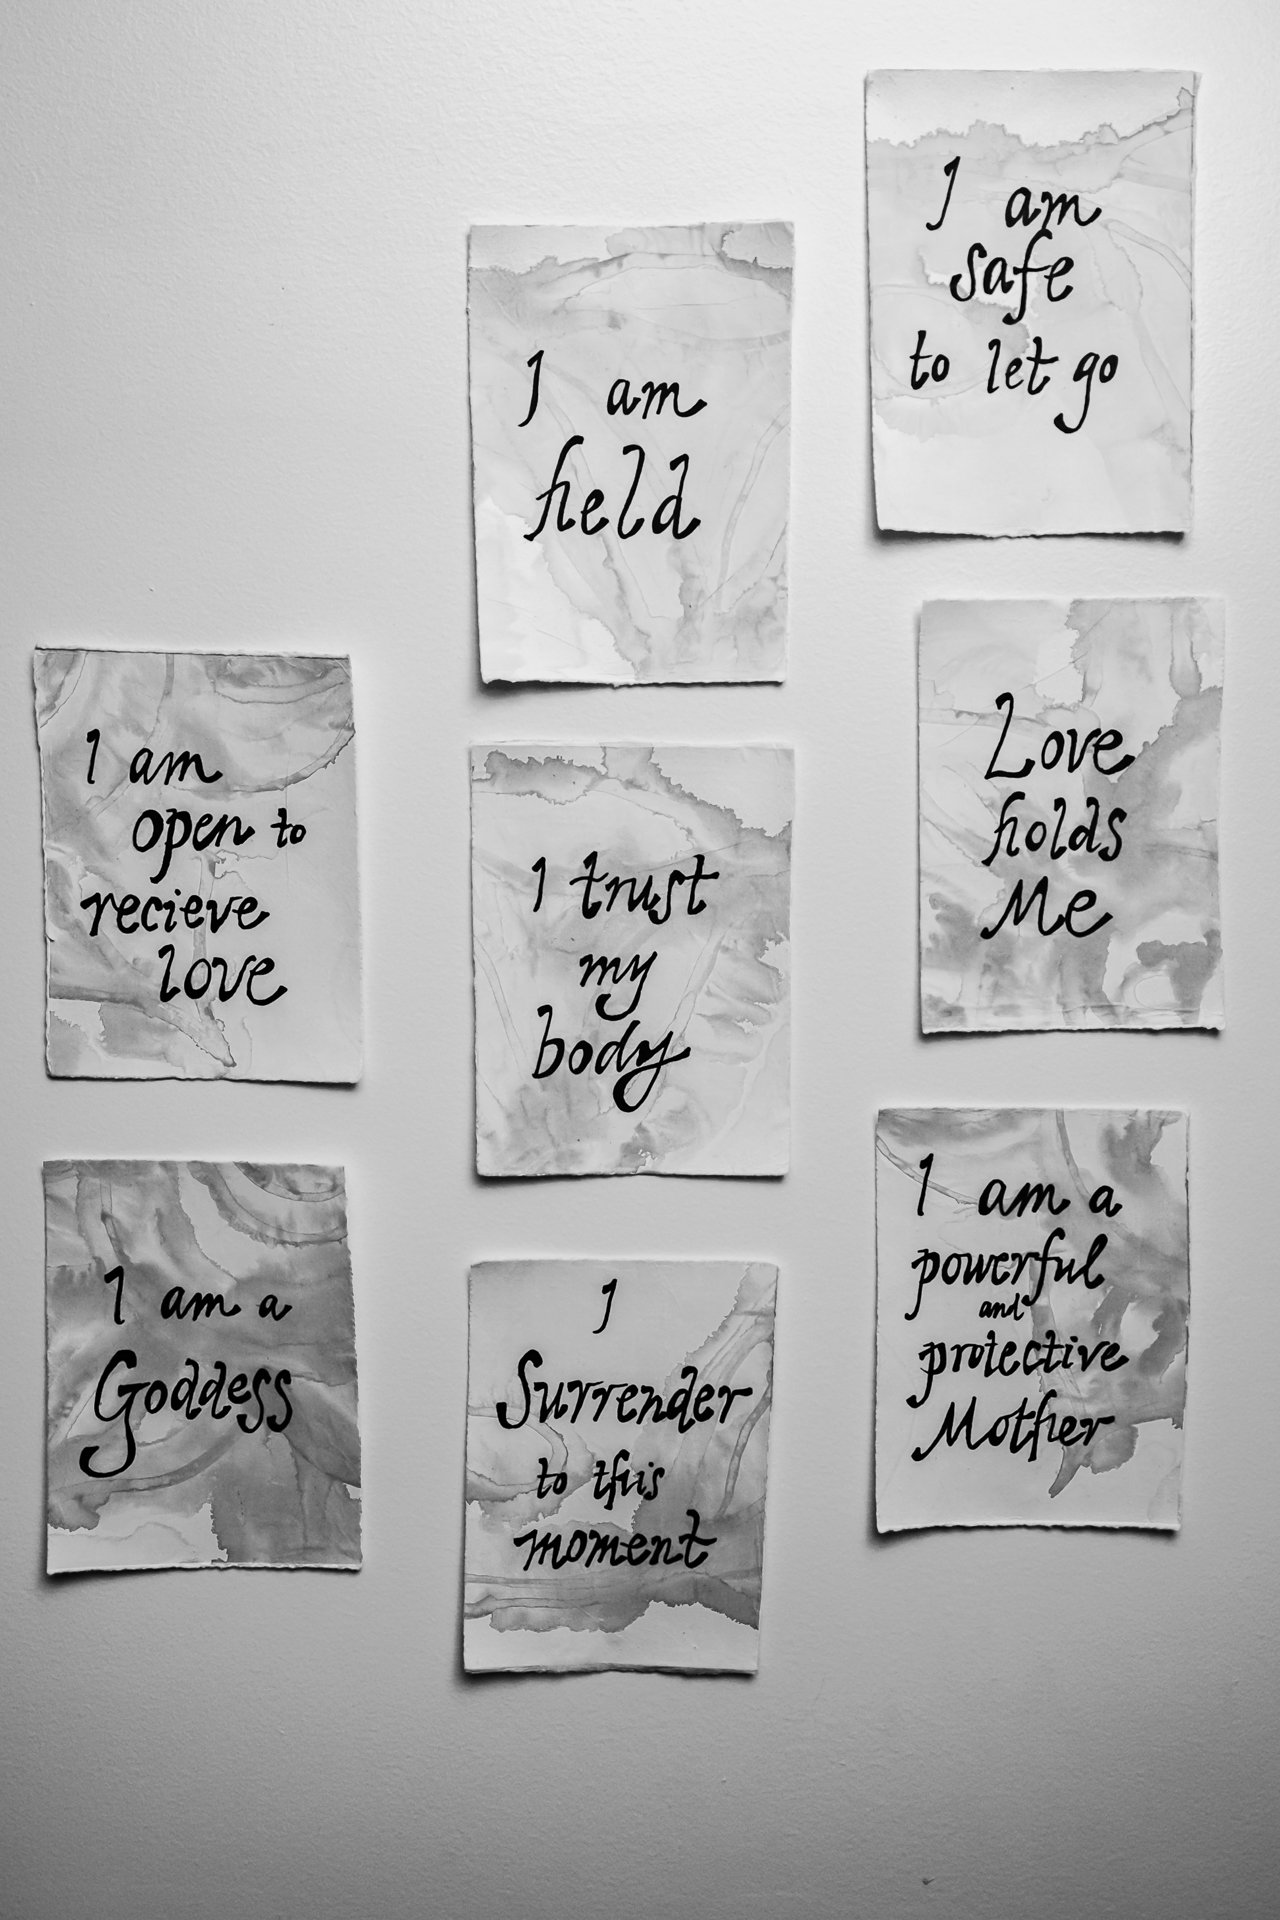 I am
open to
recieve
love
I am a
Goddess
I am
held
I trust
my
body
I
Surrender
to this
moment
I am
safe
to let go
Love
holds
Me
I am a
powerful
and
protective
Mother